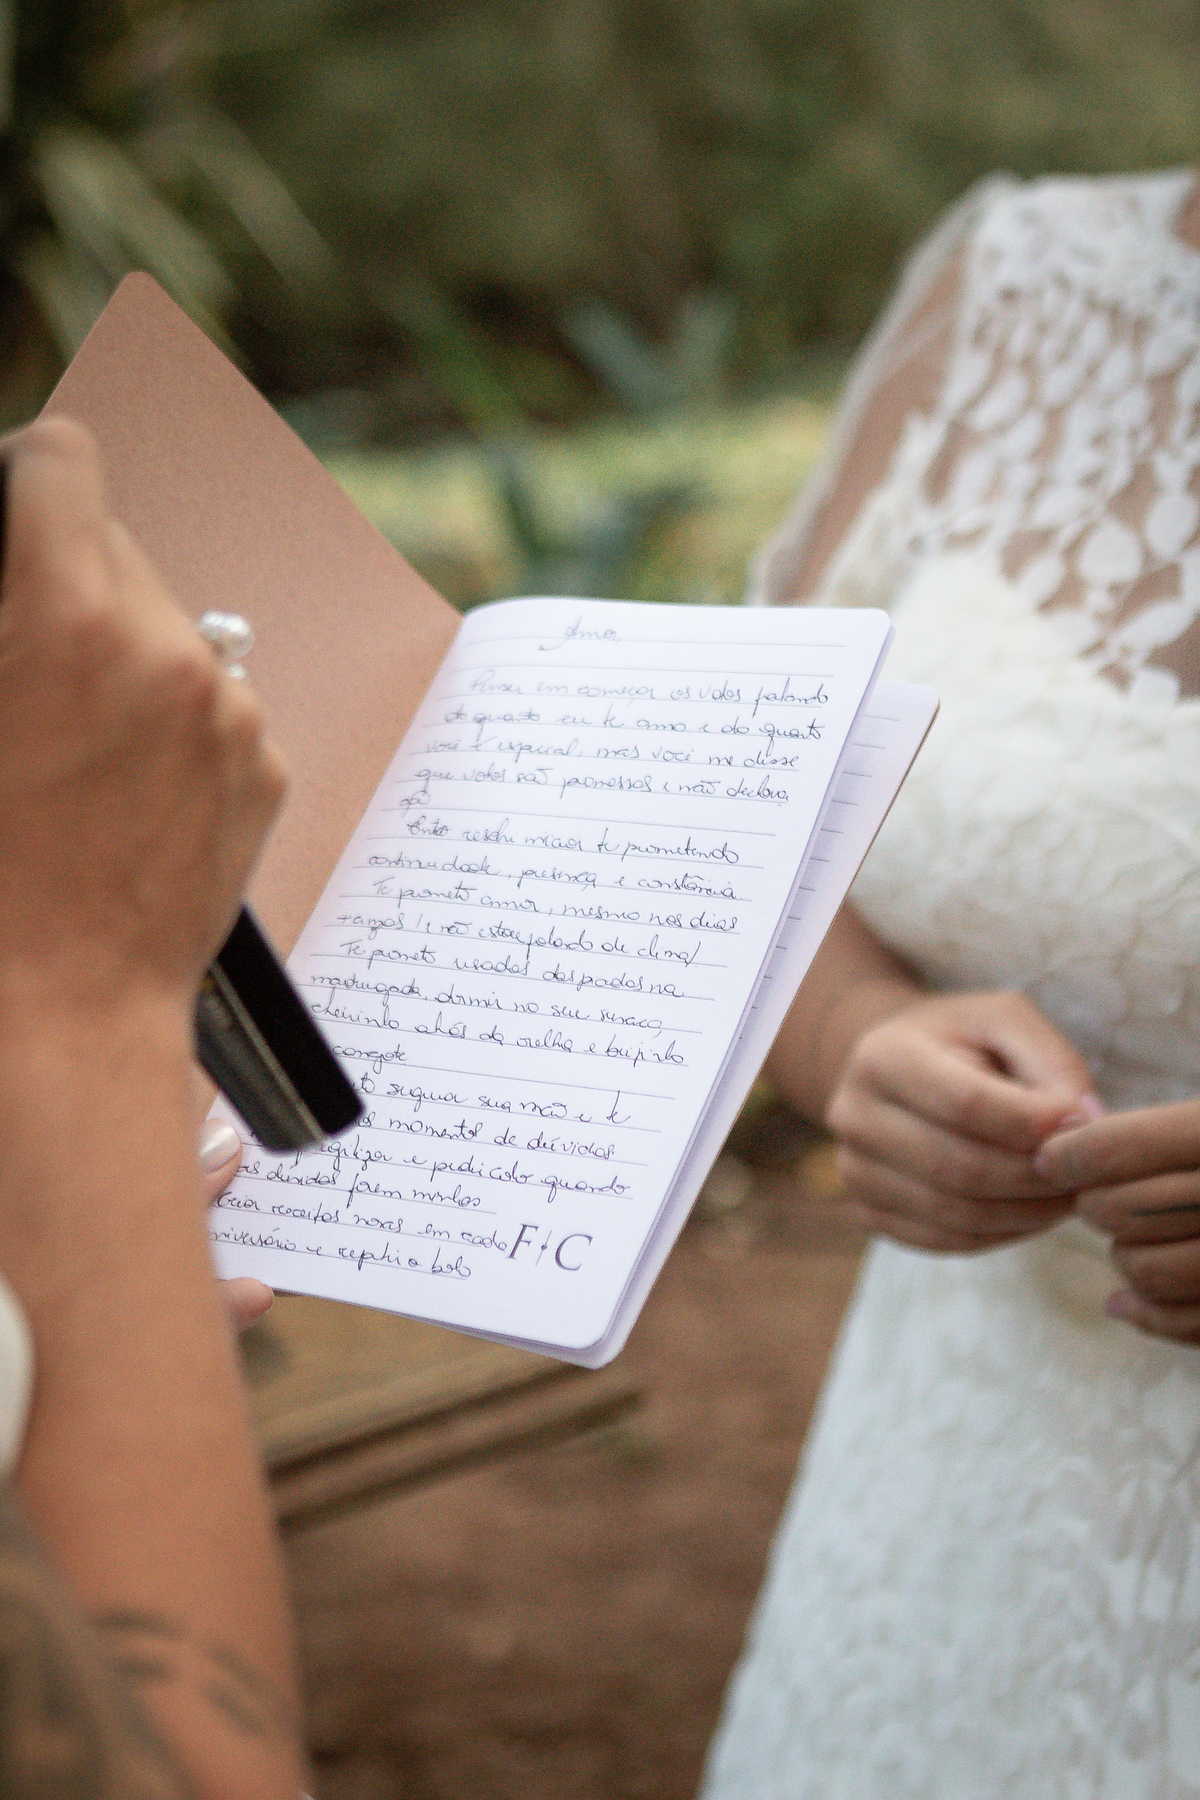 Amor,
Pensei em começar os votos falando
do quanto eu te amo e do quanto
você é especial, mas você me disse
que votos são promessas e não declara
ção
Então resolvi iniciar te prometendo
continuidade, presença e constância.
Te prometo amor, mesmo nos dias
nos dias
não estou falando do clima)
Te prometo risadas na
madrugada, dormir no seu
cheirinho atrás da orelha e beijinho
cangote
segurar sua mão e te
nos momentos de dúvidas
e pedir colo quando
as dúvidas forem minhas
receitas novas em cada
niversário e repetir o bolo
F + C